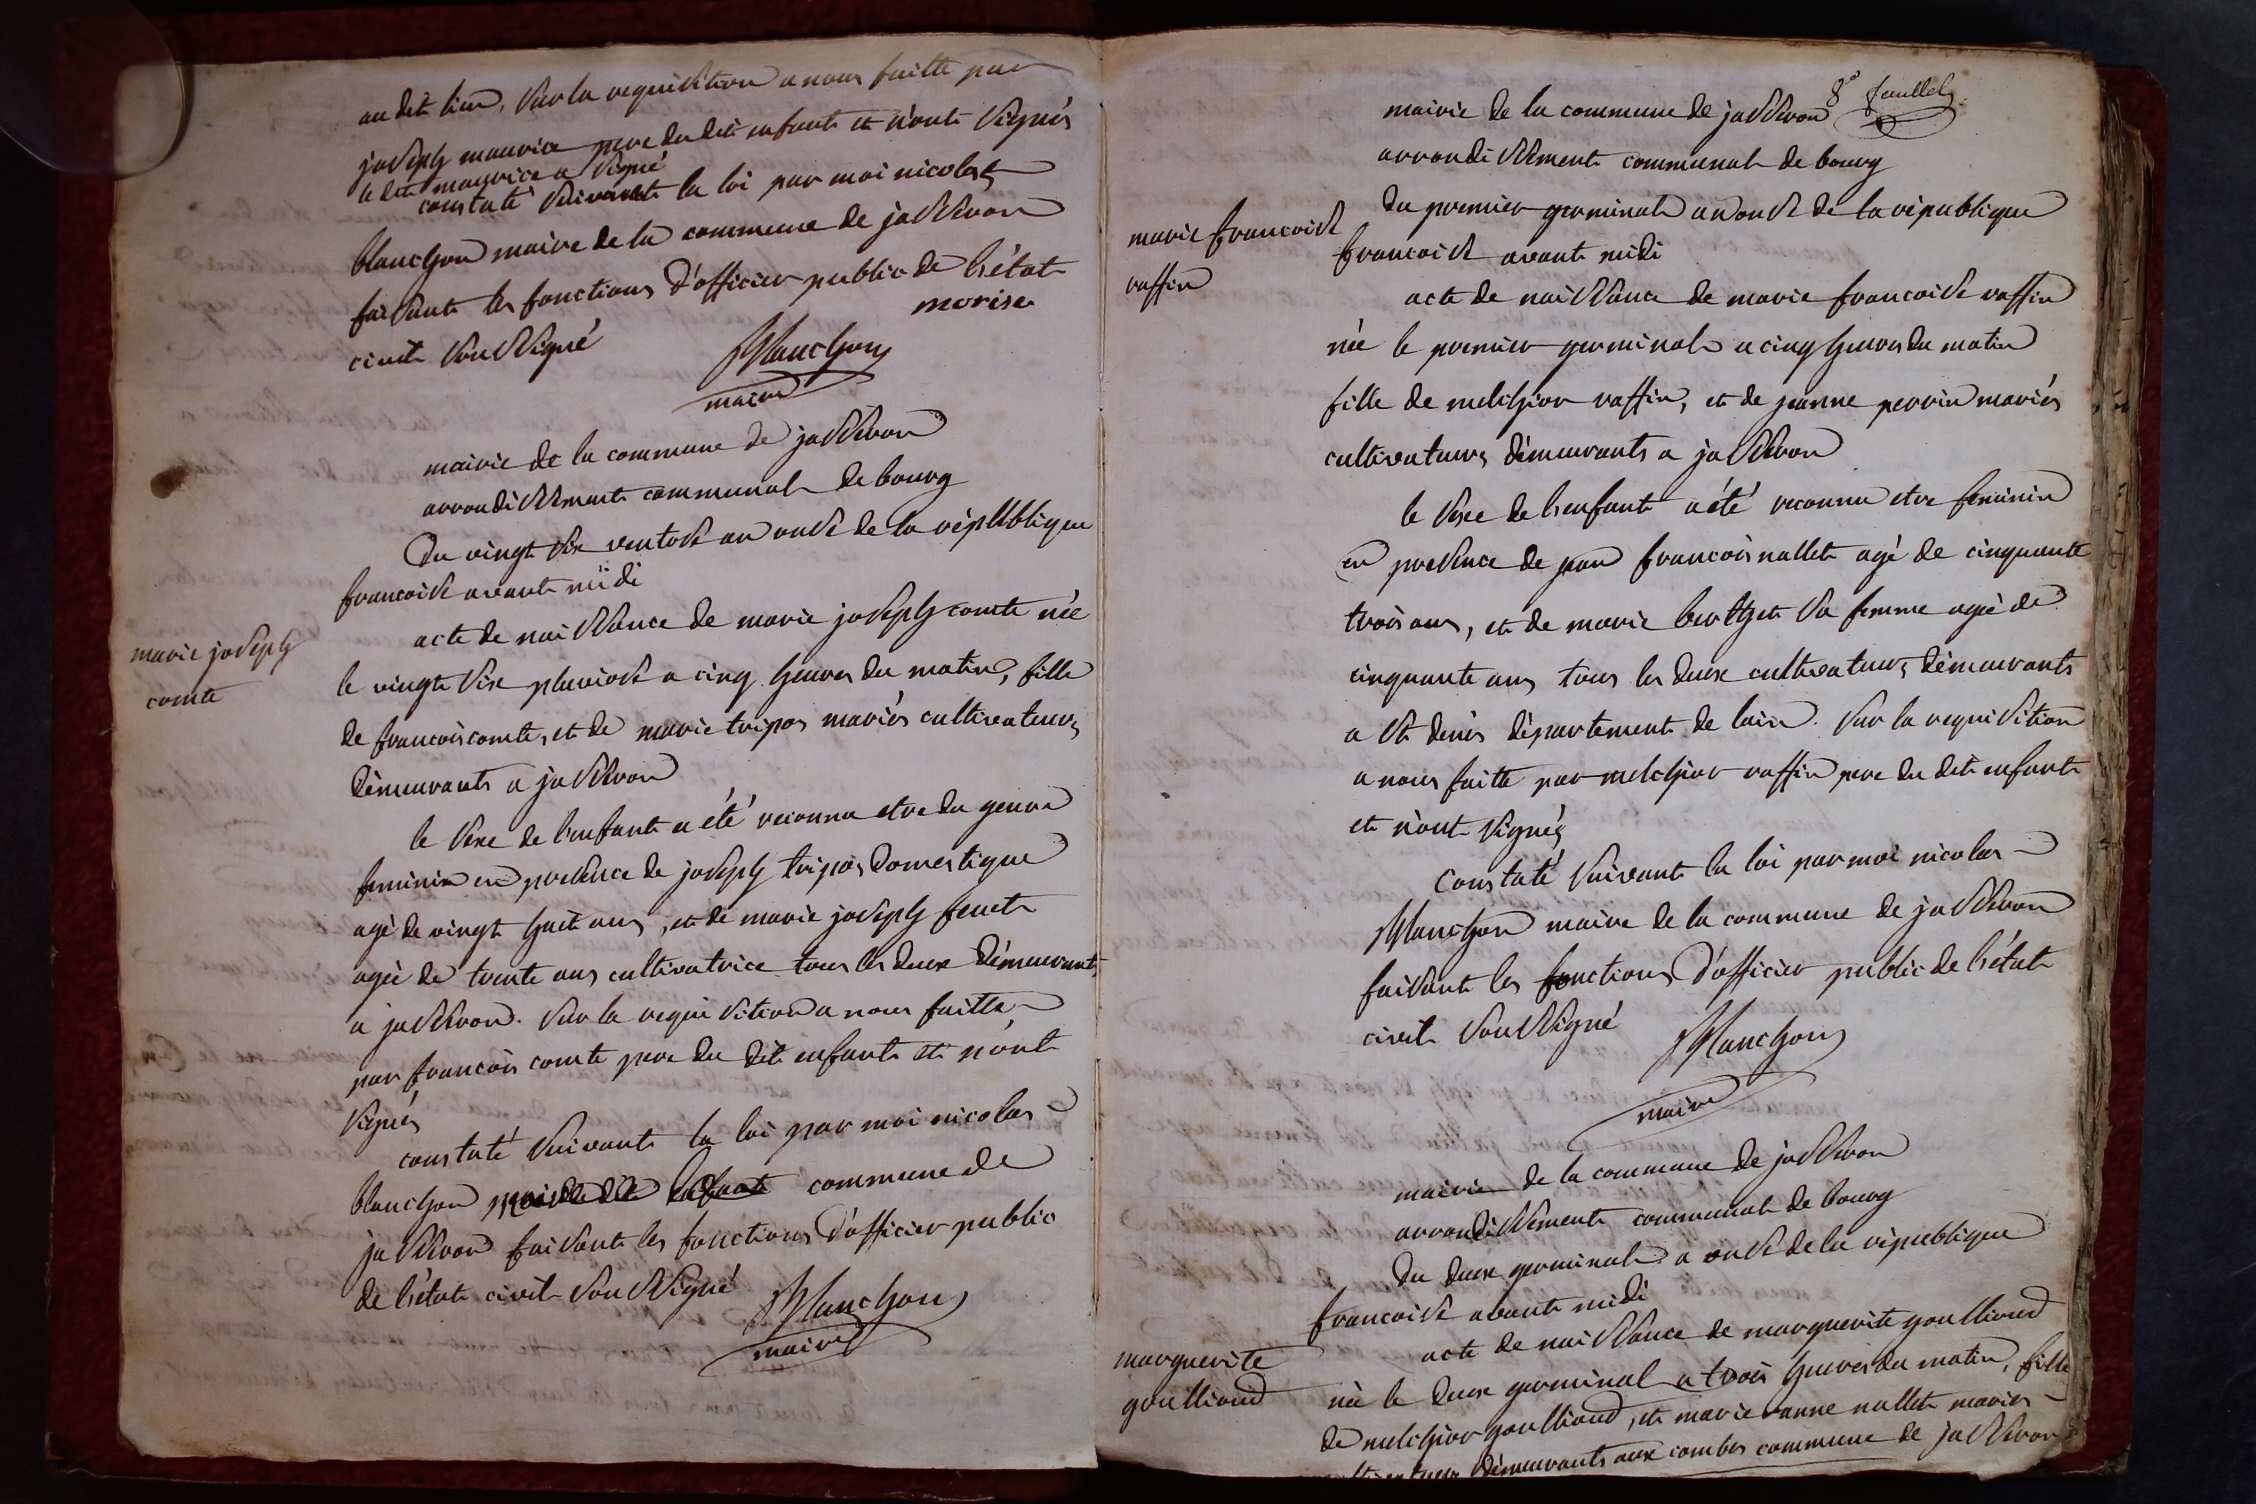 au dit lieu, sur la requisition a nous faitte par
joseph maurice pere du dit enfant et n'ont signés
le dit maurice a signé
constaté suivant la loi par moi nicolas
blanchon maire de la commune de jasseron
faisant les fonctions d'officier public de l'état
civil soussigné
morise
Blanchon
maire
mairie de la commune de jasseron
arrondissement communal de bourg
Du vingt six ventose an onse de la république
francoise avant midi
marie joseph
comte
acte de naissance de marie joseph comte née
le vingt six pluviose a cinq heures du matin, fille
de francois comte, et de marie tripos mariés cultivateurs
démeurants a jasseron
le sexe de l'enfant a été reconnu etre du genre
feminin en presence de joseph tripos domestique
agé de vingt huit ans, et de marie joseph
agée de trente ans cultivatrice tous les deux démeurants
a jasseron. sur la requisition a nous faitte
par francois comte pere du dit enfant et n'ont
signés
constaté suivant la loi par moi nicolas
blanchon commune de
jasseron faisant les fonctions d'officier public
de l'état civil soussigné
Blanchon
maire
8e feuillet
mairie de la commune de jasseron
arrondissement communal de bourg
Du premier germinal an onse de la république
francoise avant midi
marie francoise
raffin
acte de naissance de marie francoise raffin
née le premier germinal a cinq heures du matin
fille de melchior raffin, et de jeanne perrin mariés
cultivateurs démeurants a jasseron
le sexe de l'enfant a été reconnu etre feminin
en presence de jean francois nallet agé de cinquante
trois ans, et de marie berthet sa femme agée de
cinquante ans tous les deux cultivateurs démeurants
a st denis département de lain. sur la requisition
a nous faitte par melchior raffin pere du dit enfant
et n'ont signés
constaté suivant la loi par moi nicolas
Blanchon maire de la commune de jasseron
faisant les fonctions d'officier public de l'état
civil soussigné
Blanchon
maire
mairie de la commune de jasseron
arrondissement communal de bourg
Du deux germinal a onse de la république
francoise avant midi
marguerite
goullioud
acte de naissance de marguerite goullioud
née le deux germinal a trois heures du matin, fille
de melchior goullioud, et marie anne nallet mariés
cultivateurs démeurants aux combes commune de jasseron